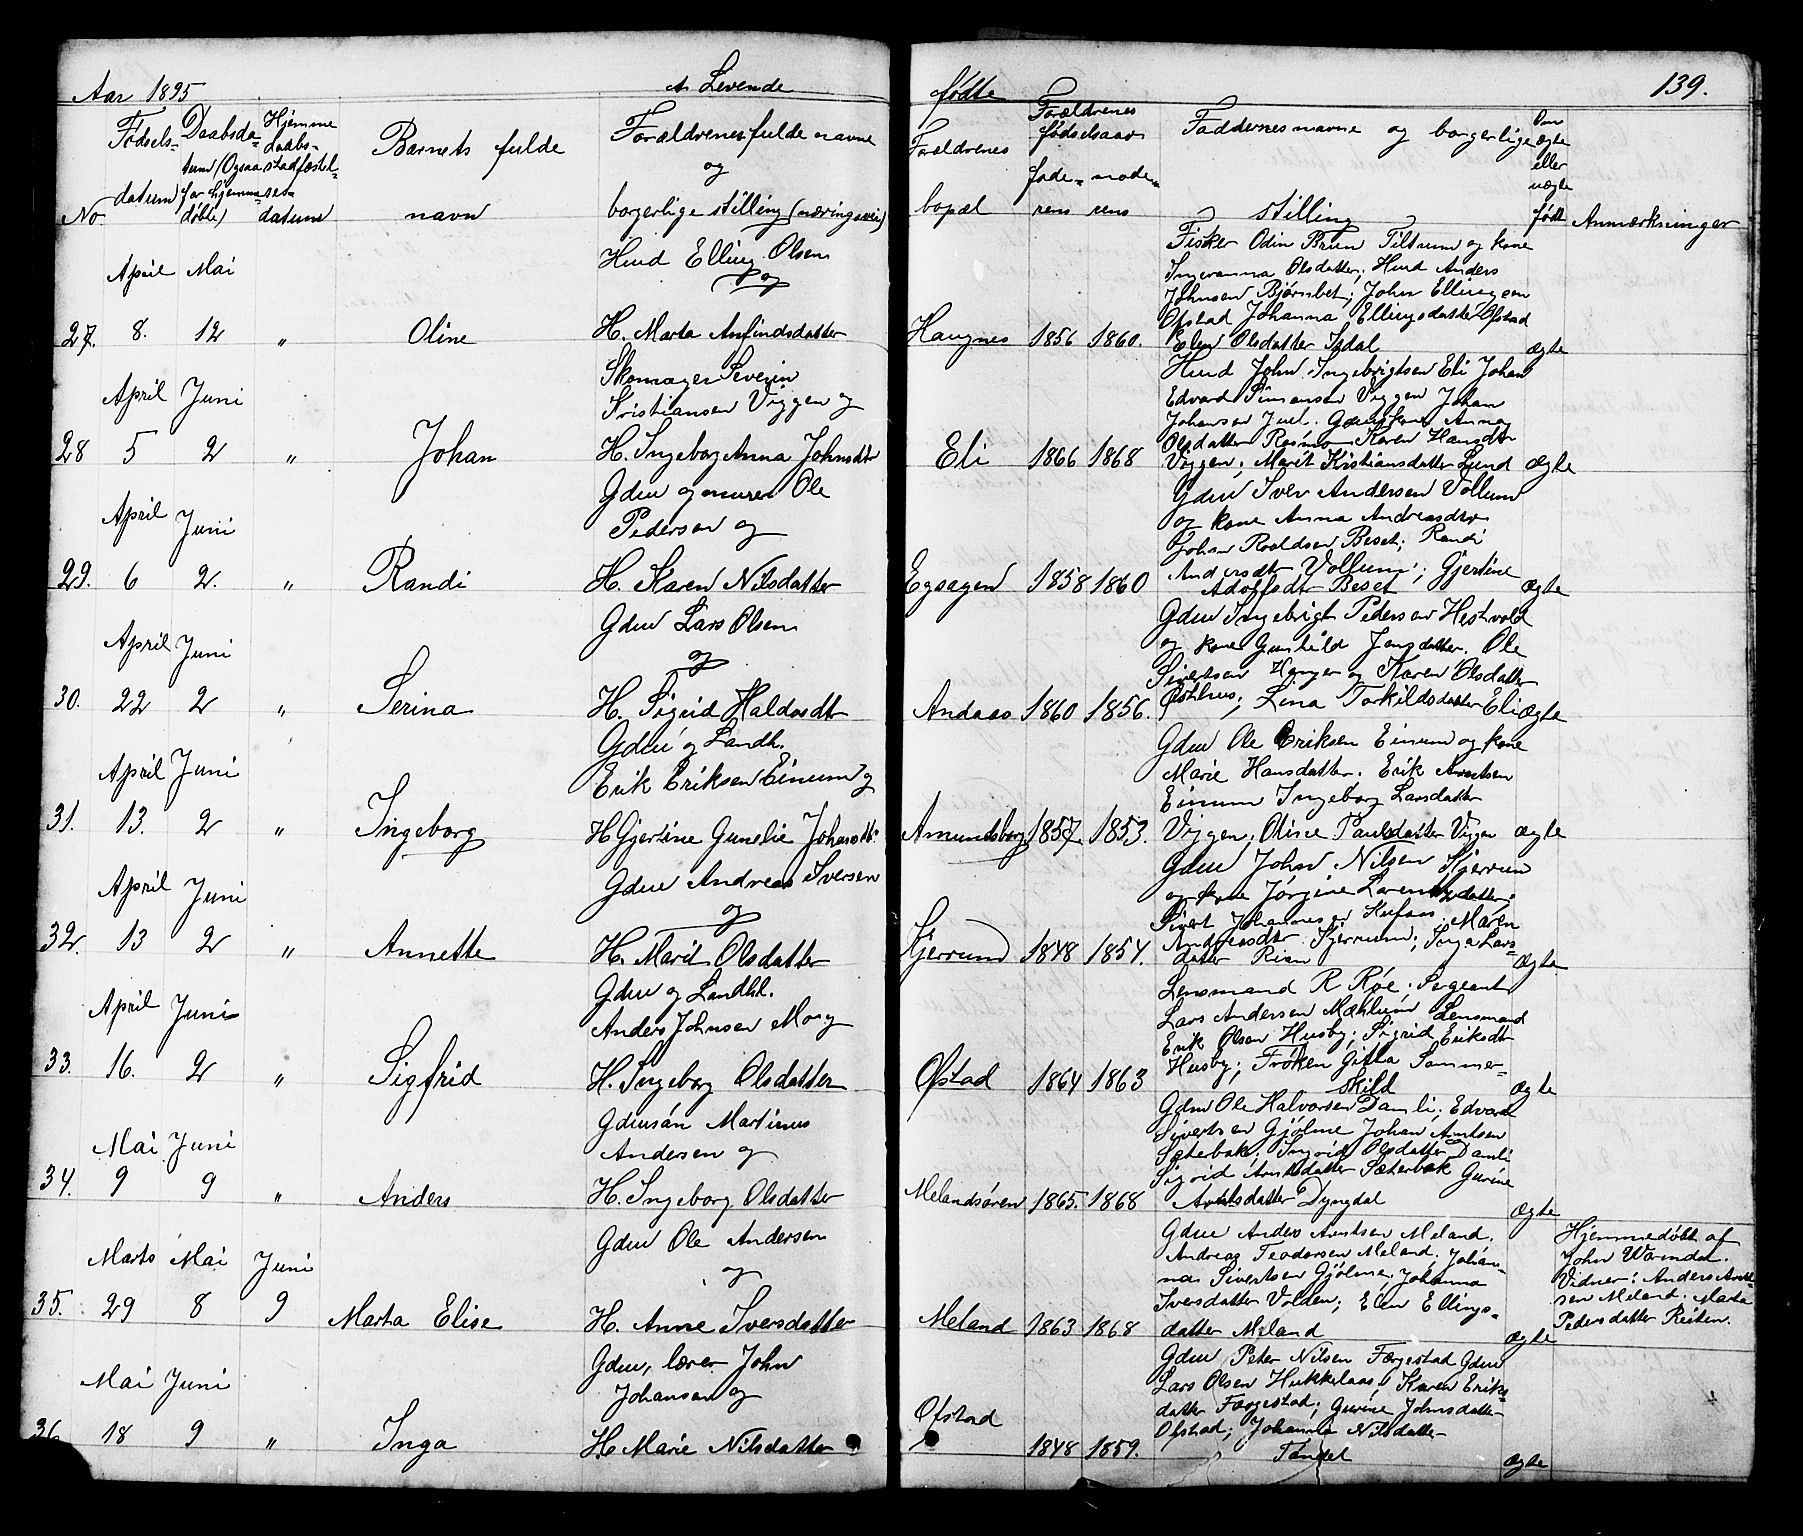 Aar 1895
A. Levende
fødte
139.
No
Fødsels-
datum
Daabsda-
tum (Ogsaa
for hjemme
døbte)
Hjemme
daabs-
stadfæstel-
ses-
datum
Barnets fulde
navn
Forældrenes fulde navne
og
borgerlige stilling (næringsvei)
Forældrenes
bopæl
Forældrenes
fødselsaar
fade- mode-
rens rens
Faddernes navne og borgerlige
stilling
Om
ægte
eller
uægte
født
Anmærkninger
27. April 8. Mai 12 " Oline
Husd Elling Olsen
og
H. Marta Anfindsdatter
Haugnes 1856 1860.
Fisker Odin Bruun Tiltrum og kone
Ingeranna Olsdatter; Husd Anders
Johnsen Bjørnbet; John Ellingsen
Ofstad Johanna Ellingsdatter Ofstad
Elen Olsdatter Indal
ægte
28 April 5 Juni 2 " Johan
Skomager Severin
Kristiansen Viggen og
H. Ingeborg Anna Johnsdtr
Eli 1866 1868
Husd John Ingebrigtsen Eli Johan
Edvard Simonsen Viggen Johan
Johansen Juul. Gdmds kone Anna
Olsdatter Rosmo Karen Hansdtr
Viggen; Marit Kristiansdatter Lund
Ægte
29. April 6 Juni 2. " Randi
Gdm og murer Ole
Pedersen og
H. Karen Nilsdatter
Egsagen 1858 1860
Gdm Iver Andersen Vollum
og kone Anna Andreasdtr
John Roaldsen Beset; Randi
Andersdtr Vollum; Gjertine
Adolfsdtr Beset
ægte
30. April 22 Juni 2 " Serina
Gdm Lars Olsen
og
H. Sigrid Haldosdtr
Andaas 1860 1856.
Gdm Ingebrigt Pedersen Hestvold
og kone Gunhild Jonsdatter. Ole
Sivertsen Hanger og Karen Olsdatter
Østhus; Lina Torkildsdatter Eli
ægte
31. April 13. Juni 2 " Ingeborg
Gdm og Landh.
Erik Eriksen Einum og
H Gjertine Gunelie Johansdtr.
Amundsborg 1857 1853.
Gdm Ole Eriksen Einum og kone
Marie Hansdatter. Erik Arntsen
Einum Ingeborg Larsdatter
Viggen; Oline Paulsdatter Viggen
ægte
32. April 13 Juni 2 " Annette
Gdm Andreas Iversen
og
H. Marit Olsdatter
Kjerrund 1848 1854.
Gdm John Nilsen Kjerrum
og kone Jørgine Lorentsdatter;
Sivert Johannesen Hufaas. Maren
Andreasdtr Kjerrum; Inga Lars-
datter Rian
Ægte
33. April 16. Juni 2 " Sigfrid
Gdm og Landhl.
Anders Johnsen Mo og
H. Ingeborg Olsdatter
Ofstad 1864 1863
Lensmand R Røe. Sergeant
Lars Andersen Mæhlum Lensmand
Erik Olsen Husby; Sigrid Eriksdtr
Husby; Frøken Gitta Sommer-
skild
ægte
34. Mai 9 Juni 9 " Anders
Gdmsøn Martinus
Andersen og
H. Ingeborg Olsdatter
Melandsøren 1865. 1868
Gdm Ole Halvorsen Damli; Edvard
Sivertsen Gjølme Johan Arntsen
Sæterbak; Ingrid Olsdatter Damli
Sigrid Arntsdatter Sæterbak Gurine
Arntsdatter Dyngdal
Ægte
35. Marts 29 Mai 8 Juni 9 Marta Elise
Gdm Ole Andersen
og
H. Anne Iversdatter
Meland 1863 1868
Gdm Anders Arntsen Meland.
Andreas Teodorsen Meland. Johan-
nes Sivertsen Gjølme. Johanna
Iversdatter Volden; Elen Ellings-
datter Meland
ægte
Hjemmedøbt af
John Warndal.
Vidner: Anders Arnt-
sen Meland. Marta
Pedersdatter Reiten.
36. Mai 18 Juni 9 " Inga
Gdm, lærer John
Johansen og
H. Marie Nilsdatter
Ofstad 1848 1859.
Gdm Peter Nilsen Færgestad Gdm
Lars Olsen Hukkelaas; Karen Eriks-
datter Færgestad; Gurine Johnsdatter
Ofstad; Johanna Nilsdatter
ægte